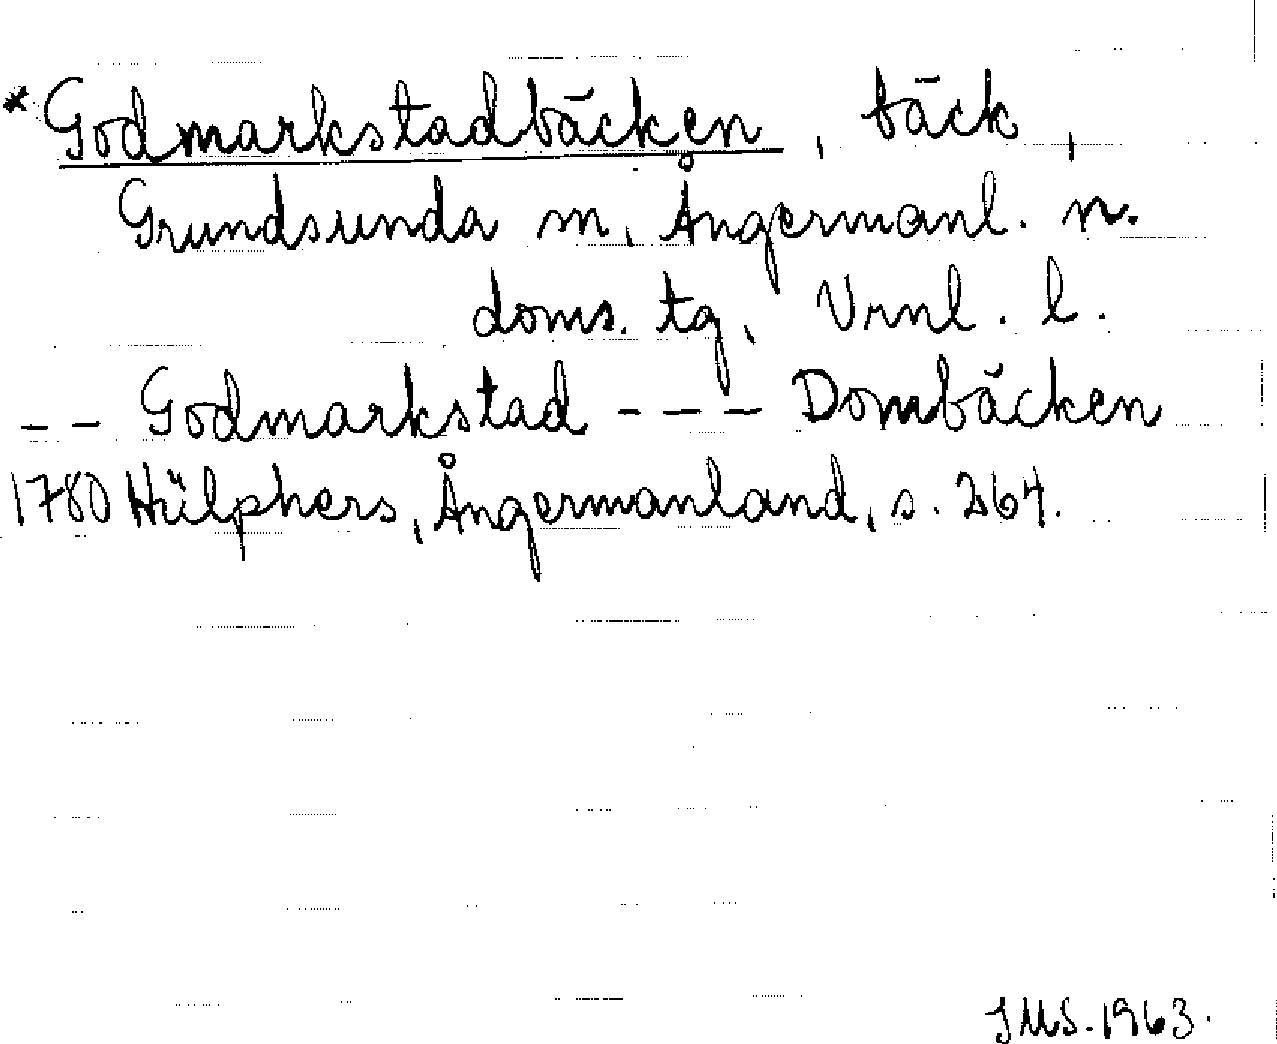 *Godmarkstadbäcken, bäck,
Grundsunda sn, Ångermanl. n.
doms. tg, Vrnl. l.
-- Godmarkstad --- Dombäcken
1780 Hülphers, Ångermanland, s. 264.
JMS. 1963.